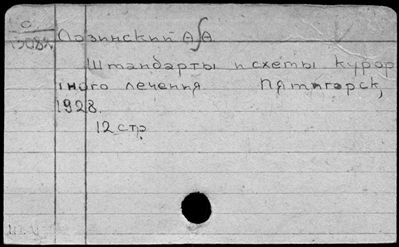 С
1508л Лозинский А А
Штандарты и схеты курор
тного лечения Пятигорск,
1928.
12 стр